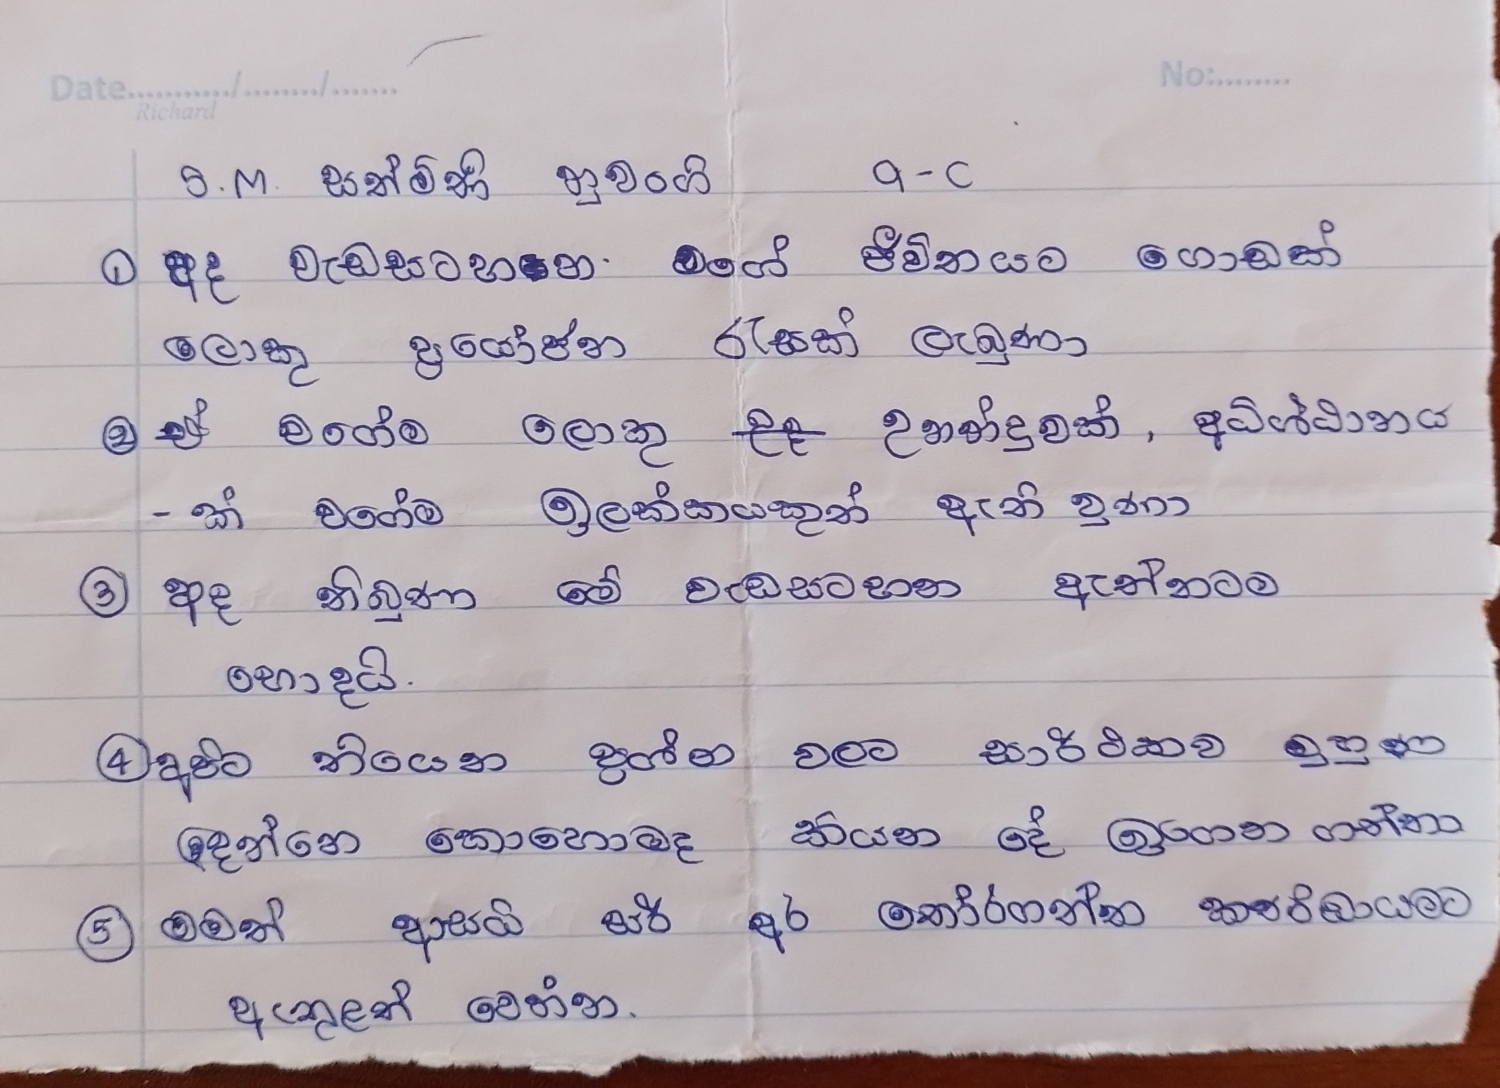 Date............/........./.......
Richard
No:.........
S.M. සත්මිණි නුවංගි 9-C
① අද වැඩසටහන. මගේ ජීවිතයට ගොඩක්
ලොකු ප්‍රයෝජන රැසක් ලැබුණා
② ඒ වගේම ලොකු උනන්දුවක්, අධිශ්ඨානය
-ක් වගේම ඉලක්කයකුත් ඇති වුණා
③ අද තිබුණා මේ වැඩසටහන ඇත්තටම
හොදයි.
④ අපිට තියෙන ප්‍රශ්න වලට සාර්ථකව මුහුණ
දෙන්නෙ කොහොමද කියන දේ ඉගෙන ගත්තා
⑤ මමත් ආසයි සර් අර තෝරගන්න කණ්ඩායමට
ඇතුළත් වෙන්න.